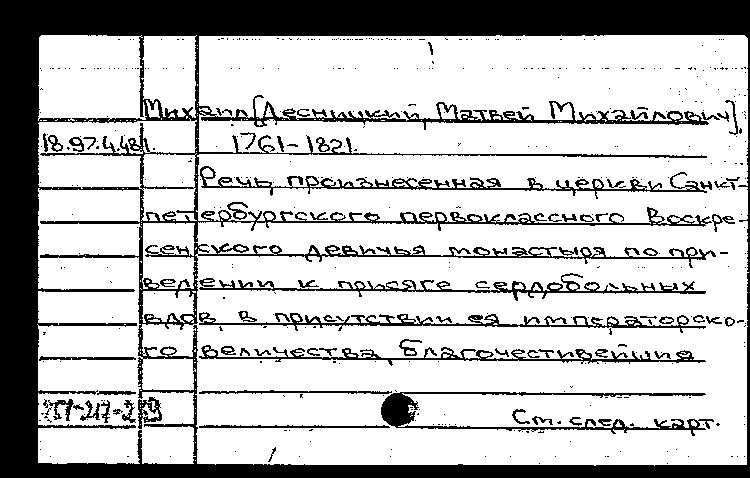 Михаил [Десницкий, Матвей Михайлович],
18.97.4.481. 1761-1821.
Речь, произнесенная в церкви Санкт-
петербургского первоклассного Воскре-
сенского девичья монастыря по при-
ведении к присяге сердобольных
вдов, в присутствии ея императорско-
го величества, благочестивейшия
См. след. карт.